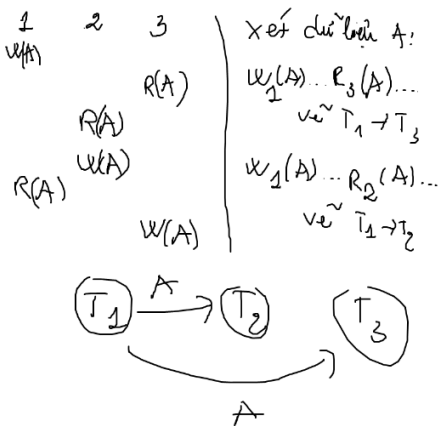 1 2 3
W(A)
R(A)
R(A)
W(A)
R(A)
W(A)
Xét dữ liệu A:
W1(A)... R3(A)....
vẽ T1 → T3
W1(A)... R2(A)...
vẽ T1 → T2
T1 A T2 T3
A